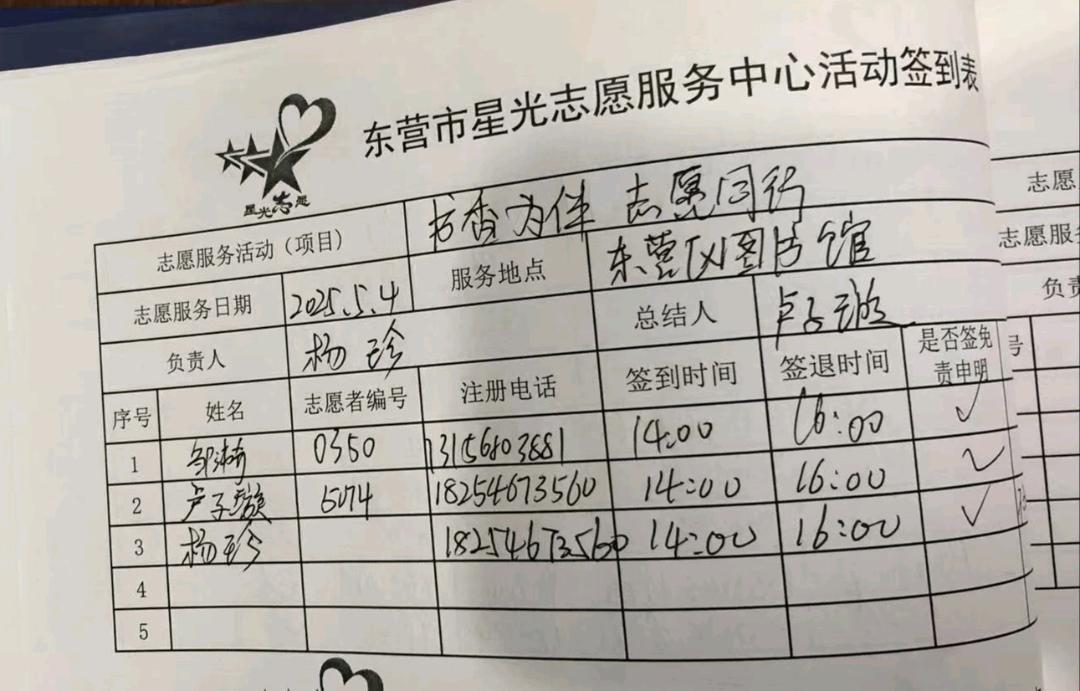 东营市星光志愿服务中心活动签到表
星光志愿
志愿服务活动（项目） 书香为伴 志愿同行
志愿服务日期 2025.5.4 服务地点 东营区图书馆
负责人 杨珍 总结人 卢子璇
序号 姓名 志愿者编号 注册电话 签到时间 签退时间 是否签免责申明
1 0350 13156803881 14:00 16:00 ✓
2 卢子璇 5074 18254673560 14:00 16:00 ✓
3 杨珍 18254673560 14:00 16:00 ✓
4
5
志愿
志愿服务
负责
号